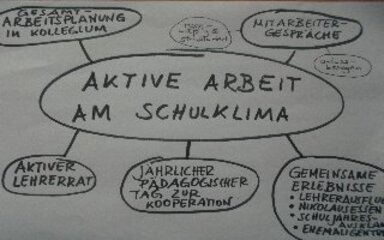 GESAMT-
ARBEITSPLANUNG
IM KOLLEGIUM
MITARBEITER-
GESPRÄCHE
AKTIVE ARBEIT
AM SCHULKLIMA
AKTIVER
LEHRERRAT
JÄHRLICHER
PÄDAGOGISCHER
TAG ZUR
KOOPERATION
GEMEINSAME
ERLEBNISSE
• LEHRERAUSFLU
• NIKOLAUSESSEN
• SCHULJAHRES-
AUSKLA
• EHEMALIGENTR